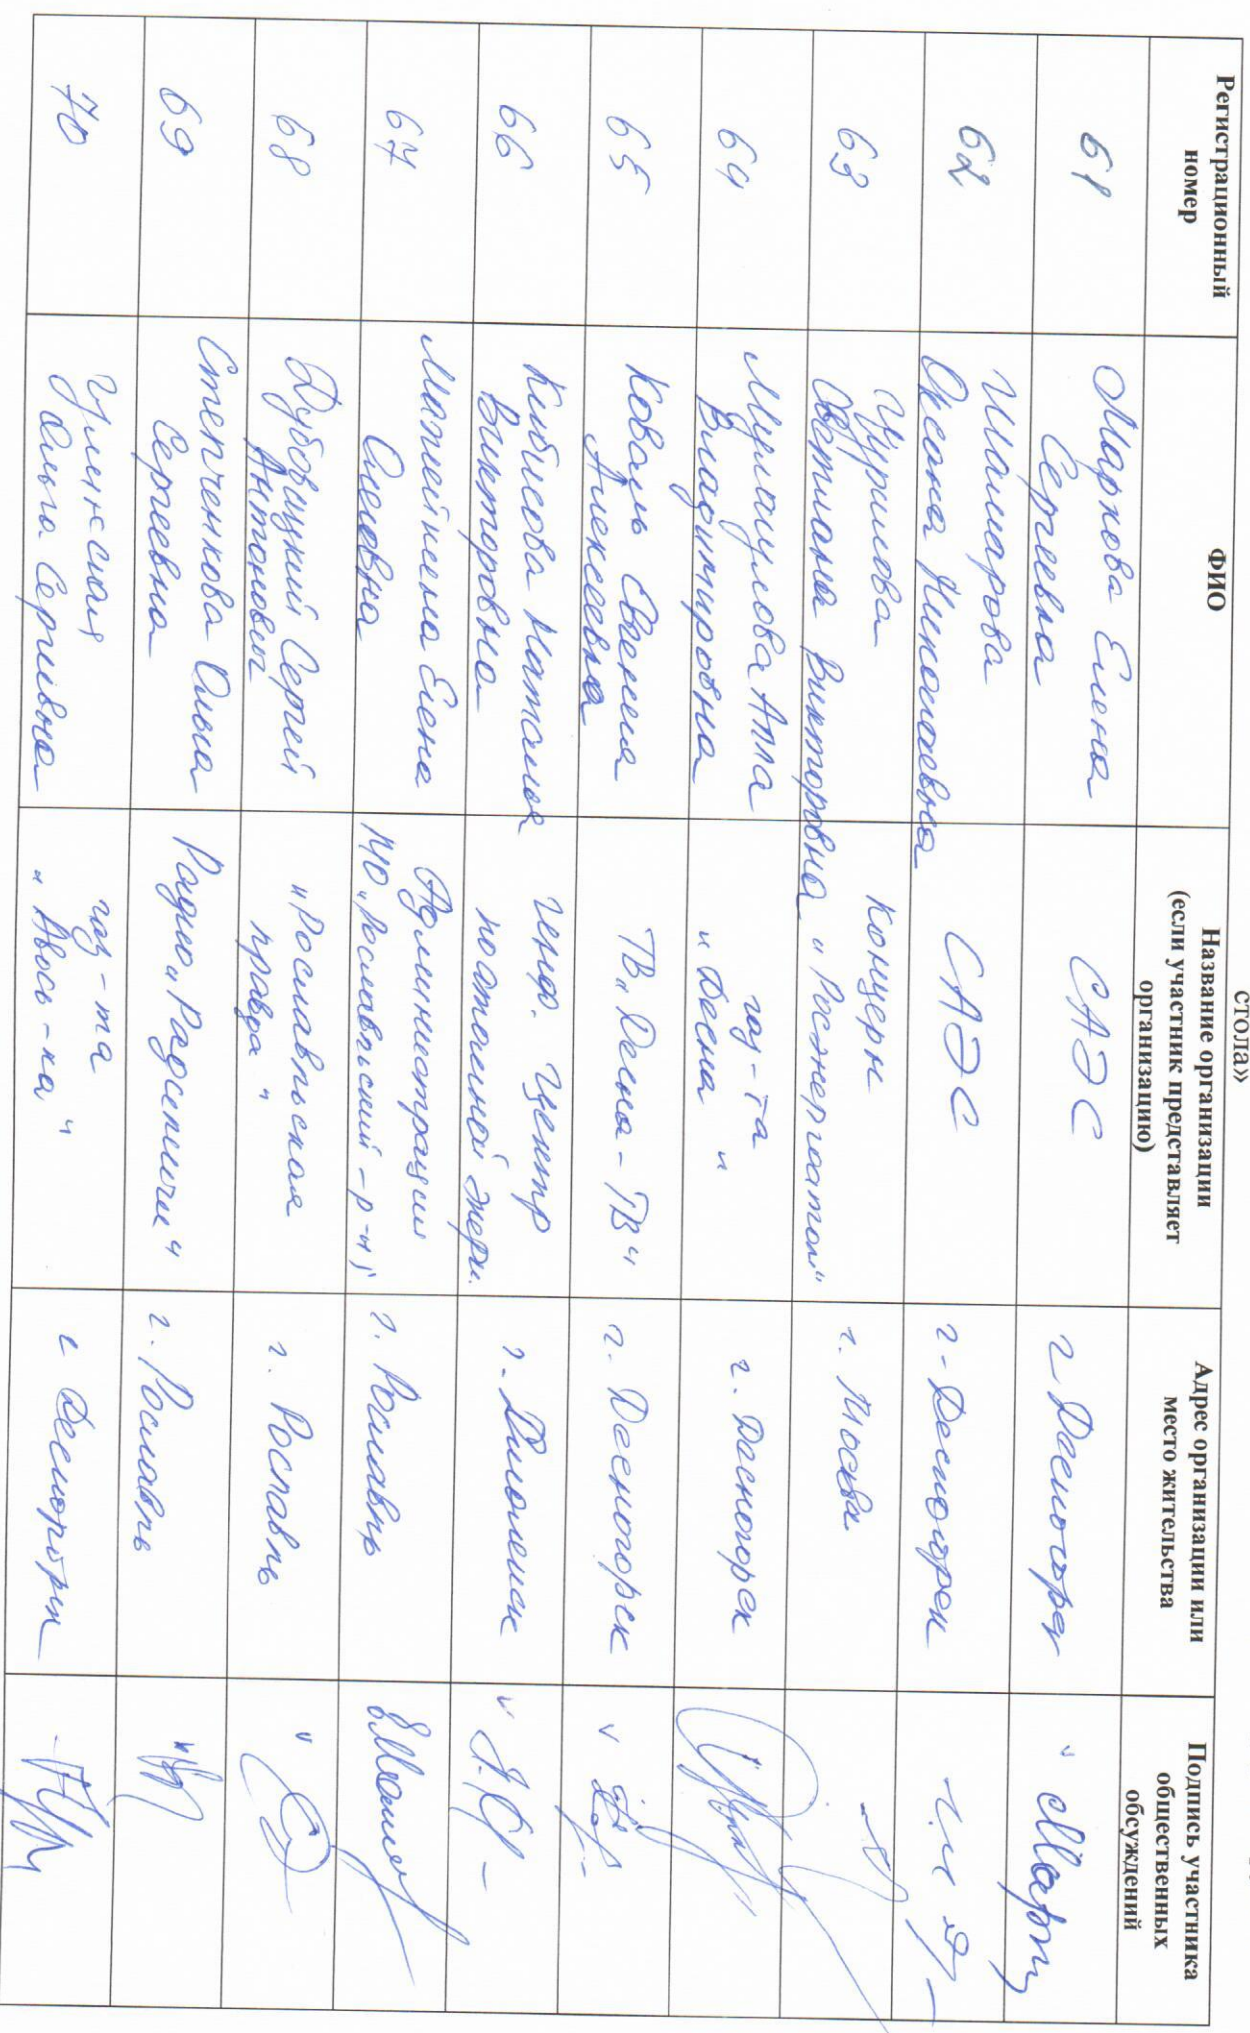 стола»
Регистрационный
номер
ФИО
Название организации
(если участник представляет
организацию)
Адрес организации или
место жительства
Подпись участника
общественных
обсуждений
61
Маркова Елена
Сергеевна
САЭС
г. Десногорск
62
Шамарова
Оксана Николаевна
САЭС
г. Десногорск
63
Светлана Викторовна
Концерн
"Росэнергоатом"
г. Москва
64
Алла
Владимировна
газ-та
"Десна"
г. Десногорск
65
Коваль Евгения
Алексеевна
ТВ "Десна-ТВ"
г. Десногорск
66
Наталья
Викторовна
Центр
по атомной энерг.
г. Смоленск
67
Елена
Олеговна
Администрация
МО "Рославльский р-н"
г. Рославль
68
Дубовицкий Сергей
Антонович
"Рославльская
правда"
г. Рославль
69
Степченкова Ольга
Сергеевна
Радио "Радимичи"
г. Рославль
70
Ольга Сергеевна
газ-та
"Авось-ка"
г. Десногорск